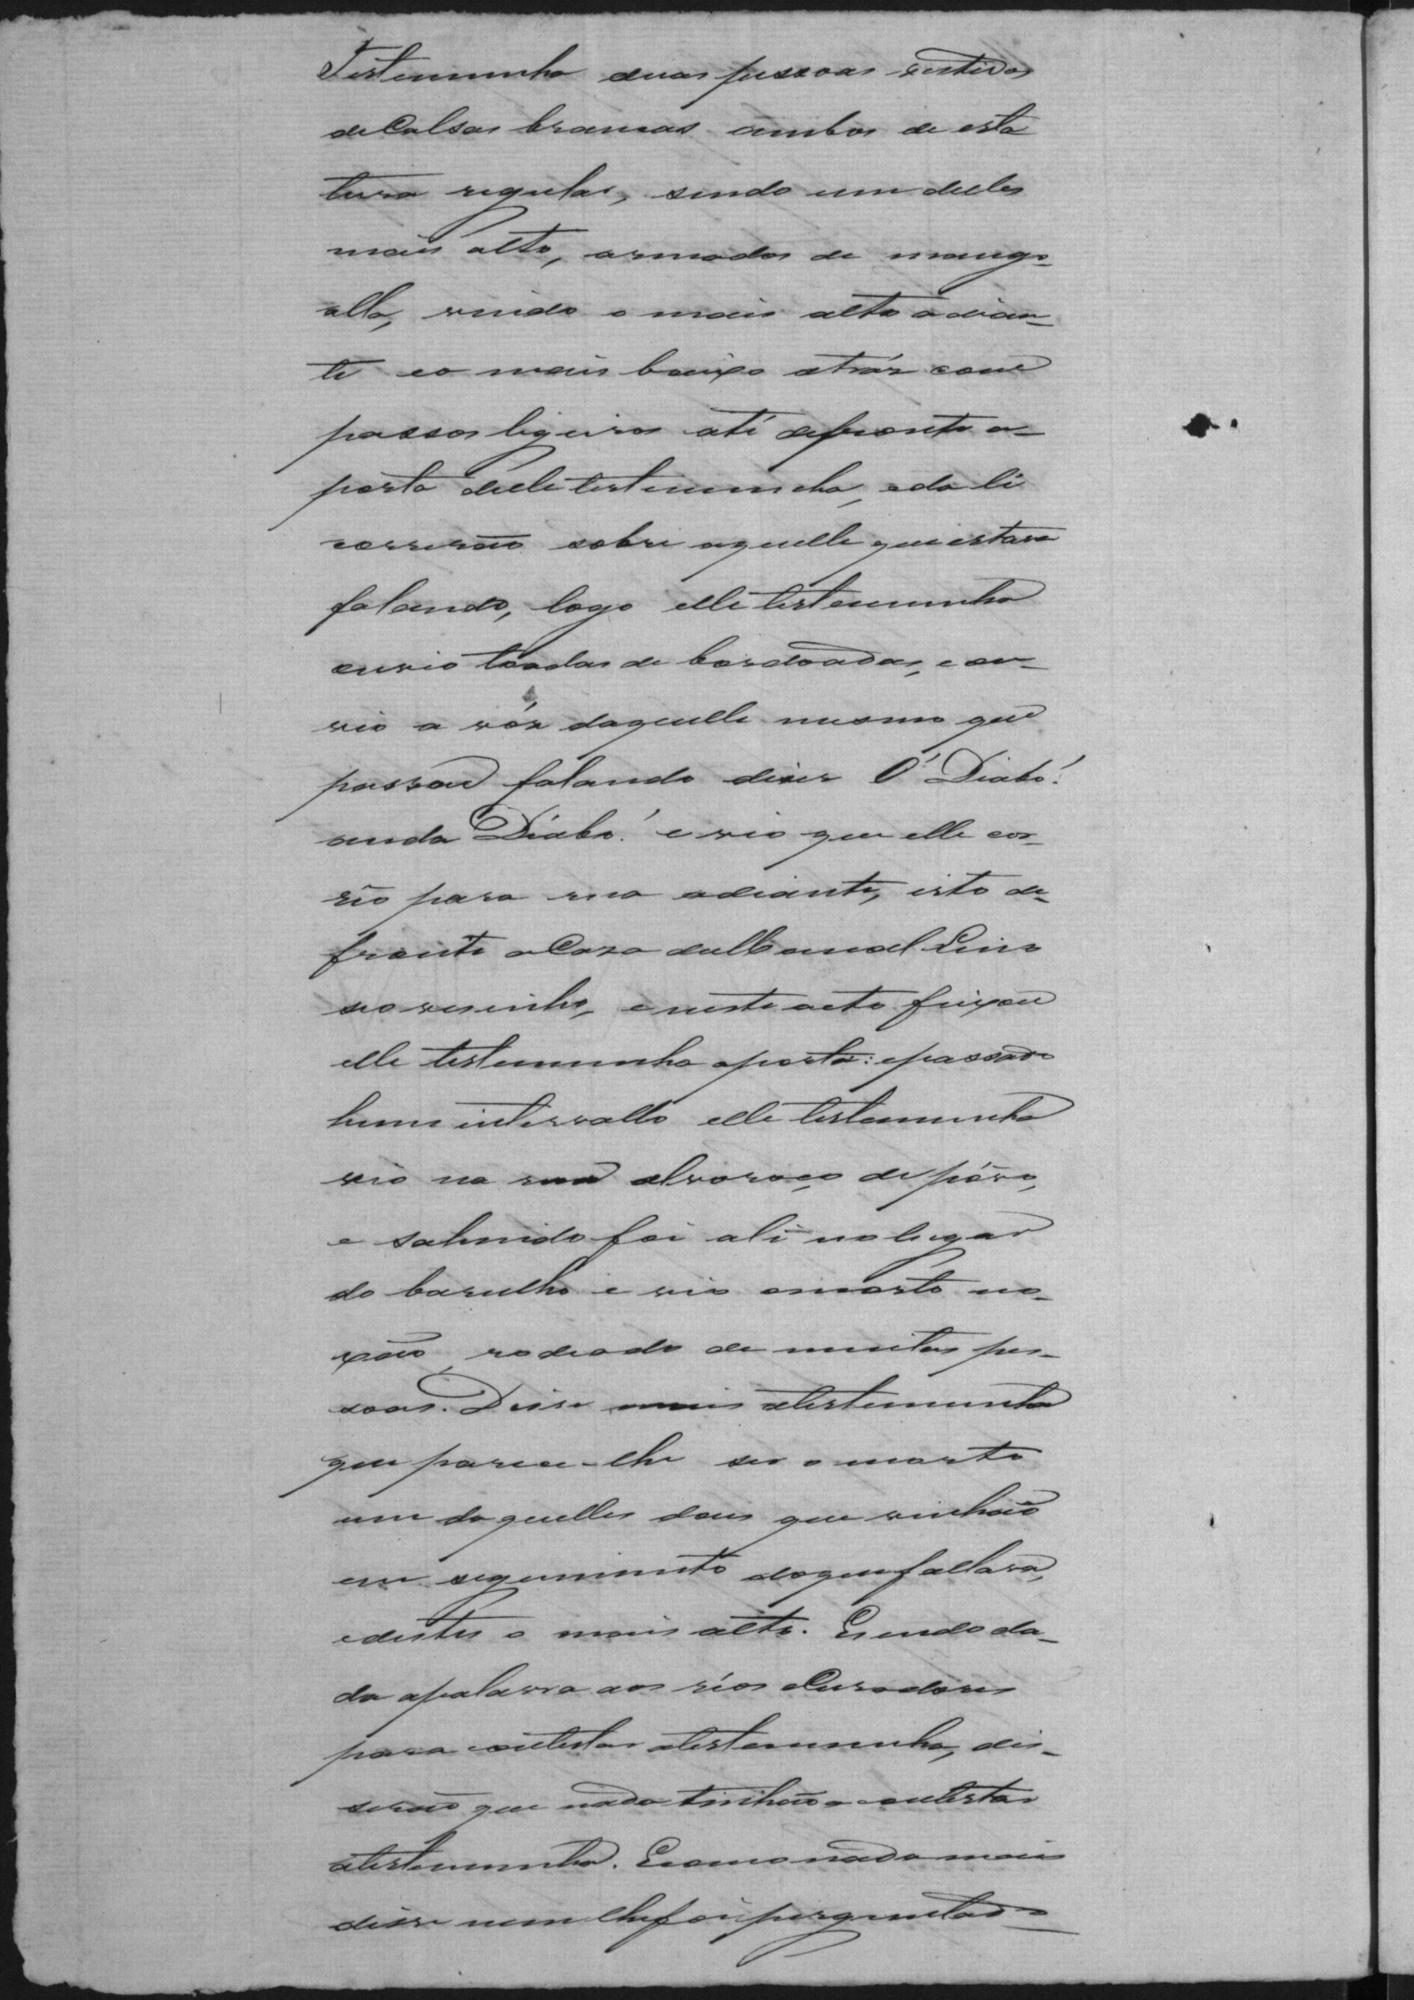 Testemunha duas pessoas vestidas
de Calsas brancas ambos de esta
tura regular, sendo um delles
mais alto, armados de mango-
allo, vindo o mais alto adian-
te e o mais baixo atrás com
passos ligeiros até defronte a-
porta delle testemunha, e da li
correrão sobre aquelle que estava
falando, logo elle testemunha
ouvio toadas de bordoadas, e ou-
vio a vóz daquelle mesmo que
passou falando dizer Ó Diabo!
anda Diabo! e vio que elle cor-
rêo para rua adiante, isto de-
fronte a Caza de Manoel Lino
seo vesinho, e neste acto feixou
elle testemunha aporta: epassado
hum intervallo elle testemunha
vio na rua alvoroço de pôvo,
e sahindo foi ali no lugar
do barulho e vio omorto no-
xão, rodeado de muitas pes-
soas. Disse mais atestemunha
que parece-lhe ser o morto
um daquelles dous que vinhão
em seguimento doque fallava,
edestes o mais alto. Esendo da-
da apalavra aos réos eCuradores
para contestar atestemunha, dis-
serão que nada tinhão a contestar
atestemunha. Ecomo nada mais
disse nem lhe foi perguntado